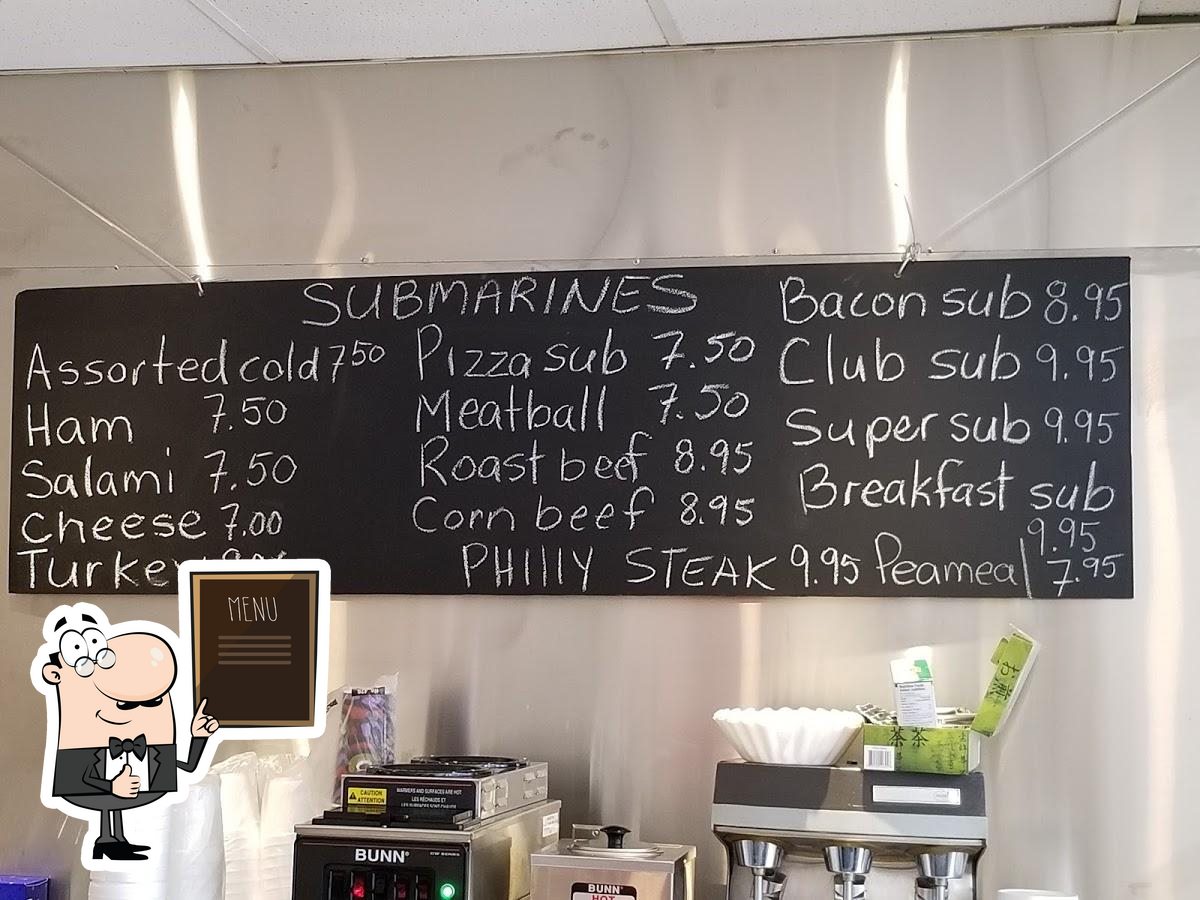 SUBMARINES
Assorted cold 7.50
Ham 7.50
Salami 7.50
cheese 7.00
Turkey
Pizza sub 7.50
Meatball 7.50
Roast beef 8.95
Corn beef 8.95
PHILLY STEAK 9.95
Bacon sub 8.95
Club sub 9.95
Super sub 9.95
Breakfast sub
9.95
Peameal 7.95
MENU
CAUTION
ATTENTION
WARMERS AND SURFACES ARE HOT
LES RÉCHAUDS ET
LES SURFACES SONT CHAUDS
BUNN
BUNN
HOT
茶茶